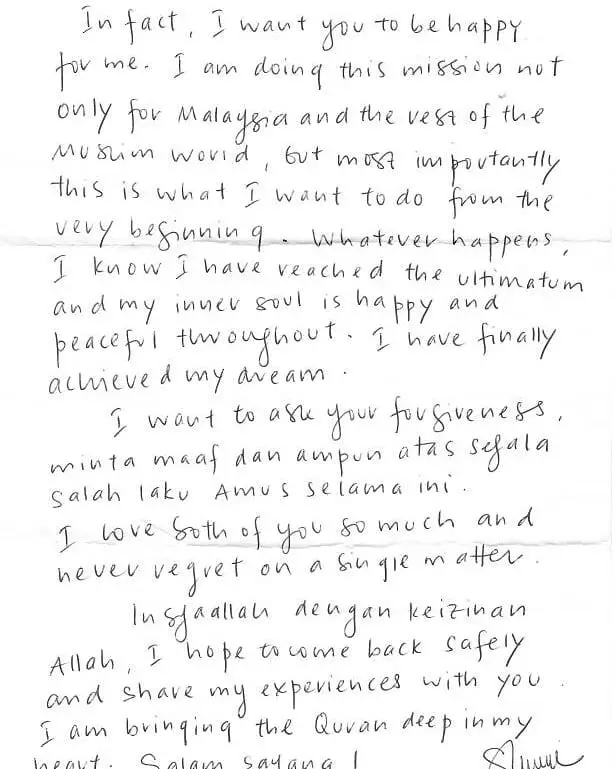 In fact, I want you to be happy
for me. I am doing this mission not
only for Malaysia and the rest of the
Muslim world, but most importantly
this is what I want to do from the
very beginning. Whatever happens,
I know I have reached the ultimatum
and my inner soul is happy and
peaceful throughout. I have finally
achieved my dream.
I want to ask your forgiveness,
minta maaf dan ampun atas segala
salah laku Amus selama ini.
I love both of you so much and
never regret on a single matter.
Insyaallah dengan keizinan
Allah, I hope to come back safely
and share my experiences with you.
I am bringing the Quran deep in my
heart. Salam sayang!